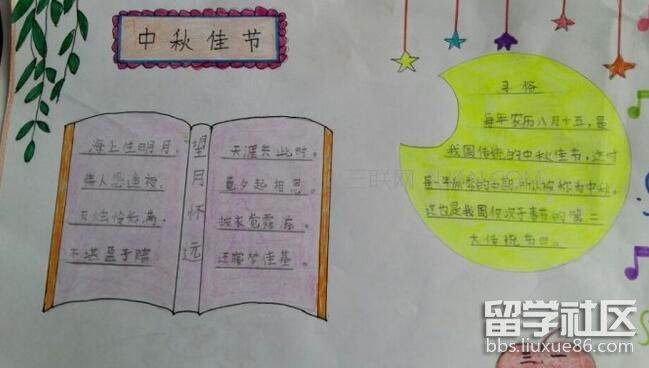 中秋佳节
望月怀远
海上佳明月,
情人怨遥夜,
灭烛怜光满,
不堪盈手赠
天涯共此时。
竟夕起相思。
披衣觉露滋。
还寝梦佳基。
习俗
每年农历八月十五,是
我国传统的中秋佳节,这时
是一年秋季的中期,所以被称为中秋。
这也是我国仅次于春节的第二
大传统节日。
三联网 3LIAN.COM
留学社区
bbs.liuxue86.com